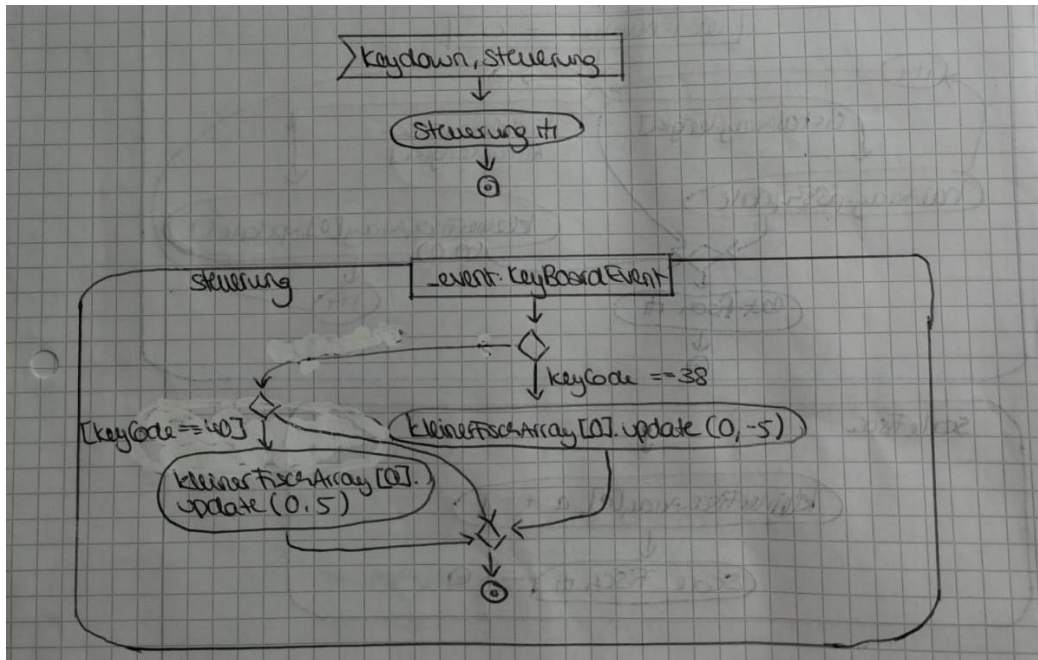 Keydown, Steuerung
Steuerung
steuerung
_event: KeyBoardEvent
keyCode ==38
[keyCode==40]
kleinerFischArray[0].update (0,-5)
kleinerFischArray[0].
update (0,5)